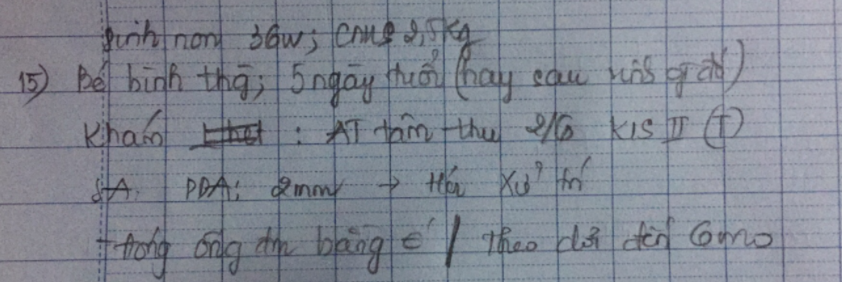 sinh non 36w; CNLS 2,5kg
15) Bé bình thg; 5 ngày tuổi (hay sau
Khám : AT tâm thu 2/6 KLS II (T)
SA: PDA: 2mm → Hỏi xử trí
+ đóng ống đm bằng / theo dõi đến 6mo